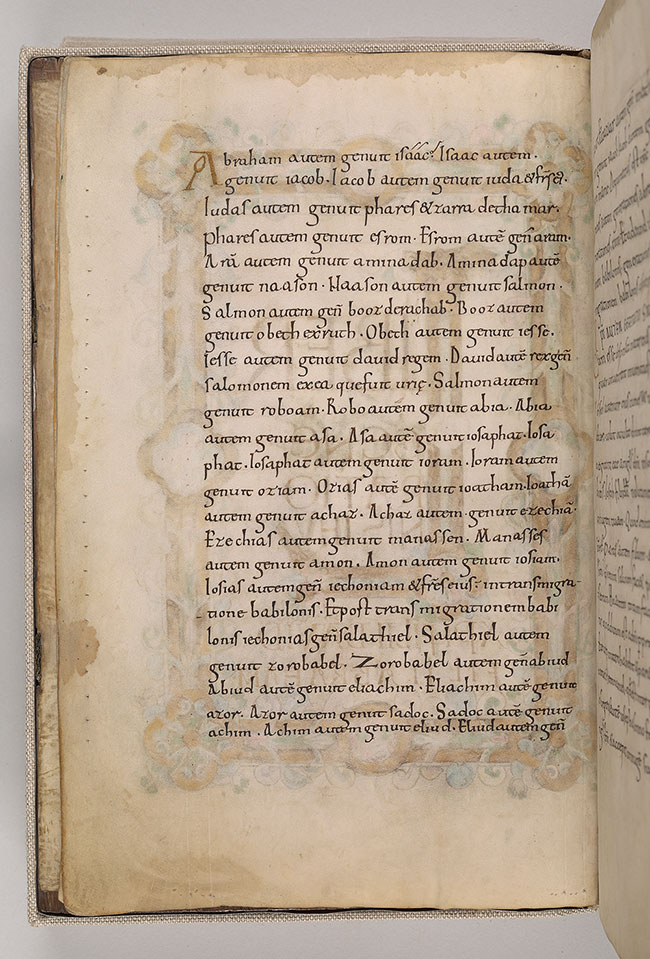 Abraham autem genuit isáác. Isaac autem.
genuit iacob. Iacob autem genuit iuda & frs ei.
Iudas autem genuit phares & zarra de thamar.
Phares autem genuit esrom. Esrom autē geñ aram.
Arā autem genuit aminadab. Aminadap autē
genuit naason. Naason autem genuit salmon.
Salmon autem geñ booz de rachab. Booz autem
genuit obeth ex ruth. Obeth autem genuit iesse.
Iesse autem genuit david regem. David autē rex geñ
salomonem ex ea que fuit urię. Salmon autem
genuit roboam. Robo autem genuit abia. Abia
autem genuit asa. Asa autē genuit iosaphat. Iosa
phat. Iosaphat autem genuit ioram. Ioram autem
genuit oziam. Ozias autē genuit ioatham. Ioathā
autem genuit achaz. Achaz autem genuit ezechiā.
Ezechias autem genuit manassen. Manasses
autem genuit amon. Amon autem genuit iosiam.
Iosias autem geñ iechoniam & frēs eius. in transmigra
tione babilonis. Et post transmigrationem babi
lonis iechonias geñ salathiel. Salathiel autem
genuit zorobabel. Zorobabel autem geñ abiud
Abiud autē genuit eliachim. Eliachim autē genuit
azor. Azor autem genuit sadoc. Sadoc autē genuit
achim. Achim autem genuit eliud. Eliud autem geñ